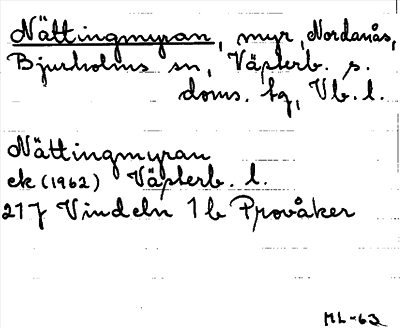 Nättingmyran, myr, Nordanås,
Bjurholms sn, Västerb. s.
doms. hg, Vb. l.
Nättingmyran
ek (1962) Västerb. l.
217 Vindeln 1 b Provåker
ML-63